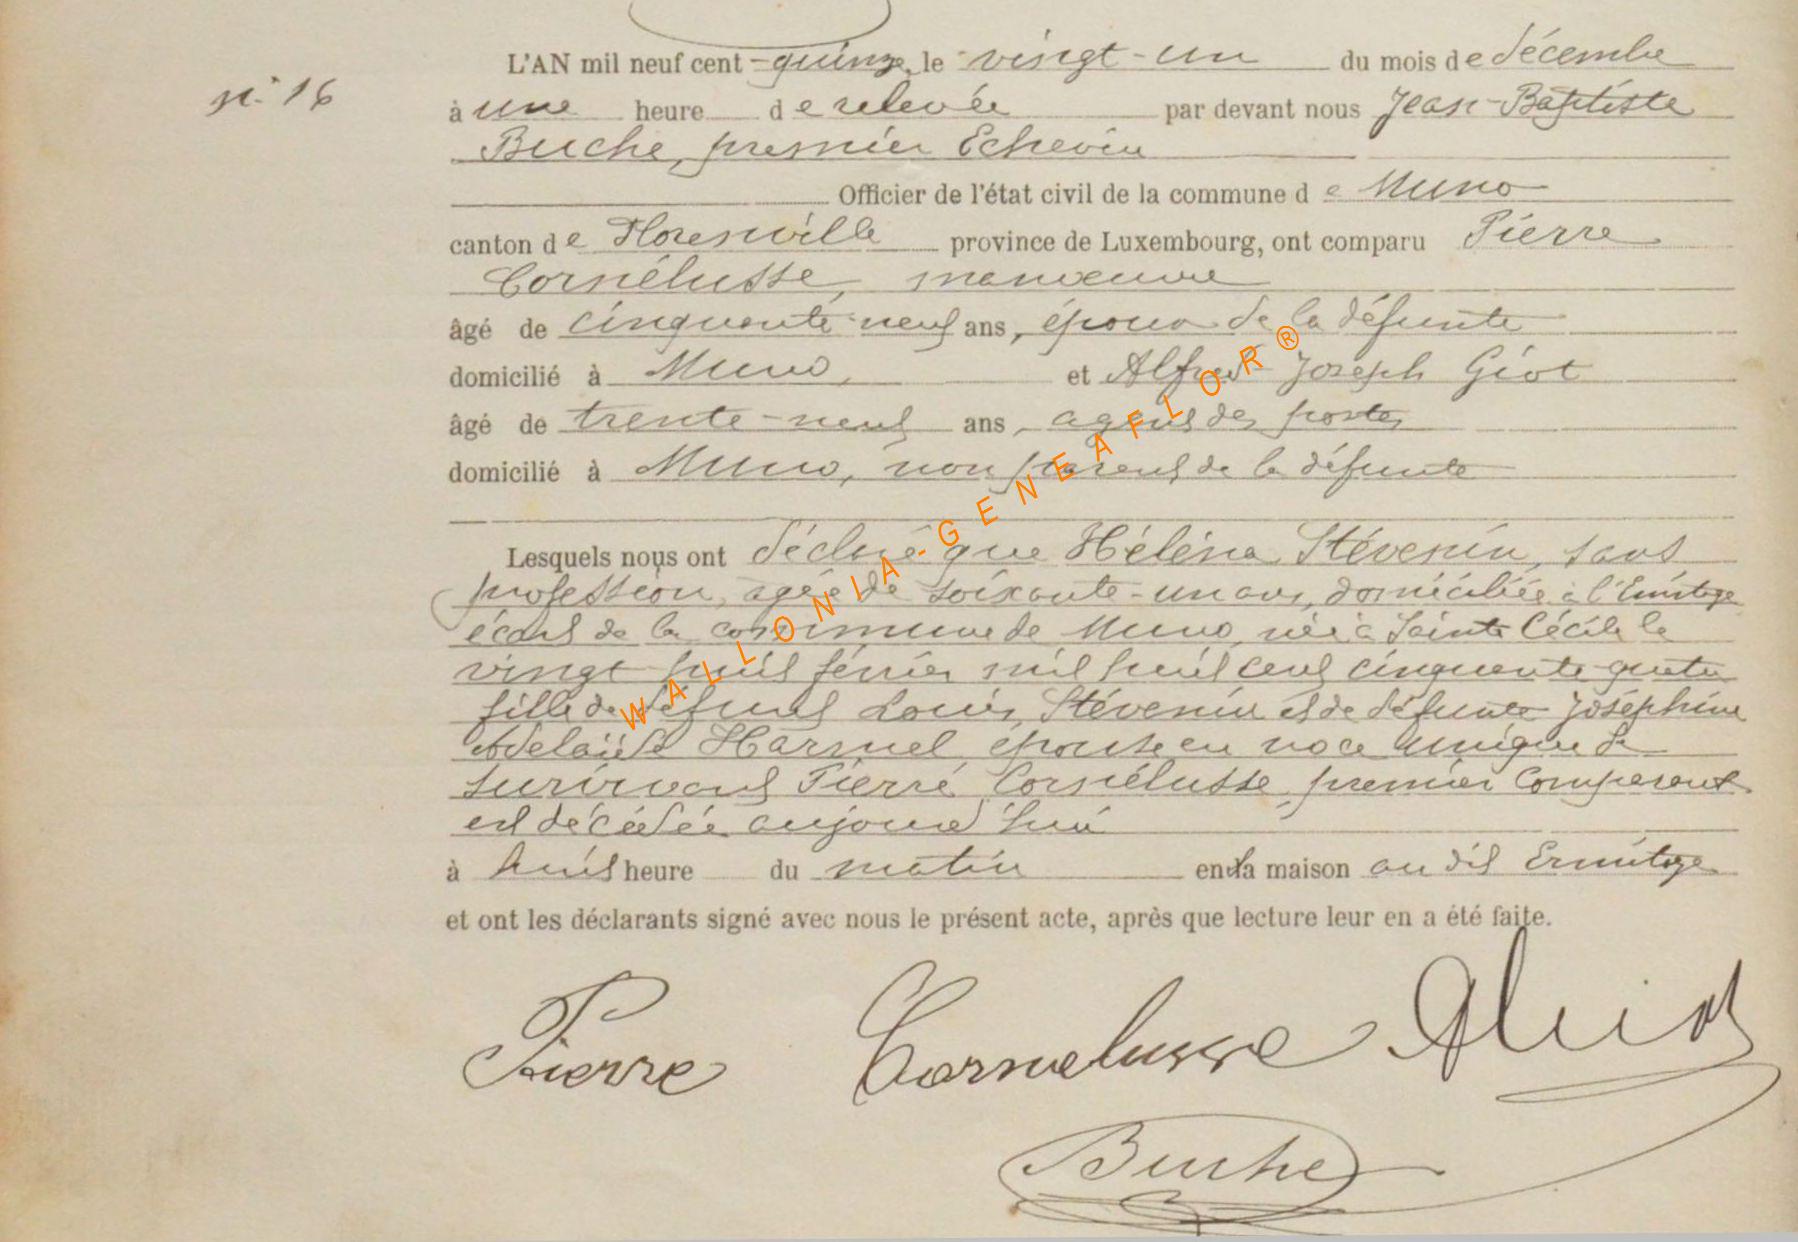 L'AN mil neuf cent quinze, le vingt-un du mois de décembre
n° 16
à une heure de relevée par devant nous Jean-Baptiste
Buche, premier Echevin
Officier de l'état civil de la commune de Muno
canton de Florenville province de Luxembourg, ont comparu Pierre
Cornélusse, manœuvre
âgé de cinquante-neuf ans, époux de la défunte
domicilié à Muno, et Alfred Joseph Giot
âgé de trente-neuf ans, agent des postes
domicilié à Muno, non parent de la défunte
Lesquels nous ont déclaré que Hélèna Stévenin, sans
profession, agée de soixante-un ans, domiciliée à l'Ermitage
écart de la commune de Muno, née à Sainte Cécile le
vingt huit février mil huit cent cinquante quatre
fille de défunt Louis Stévenin et de défunte Joséphine
Adelaïde Harmel, épouse en noce unique de
survivant Pierre Cornélusse, premier comparant
est décédée aujourd'hui
à huit heure du matin en la maison au dit Ermitage
et ont les déclarants signé avec nous le présent acte, après que lecture leur en a été faite.
Pierre Cornelusse AGiot
Buche
WALLONIA-GENEAFLOR®